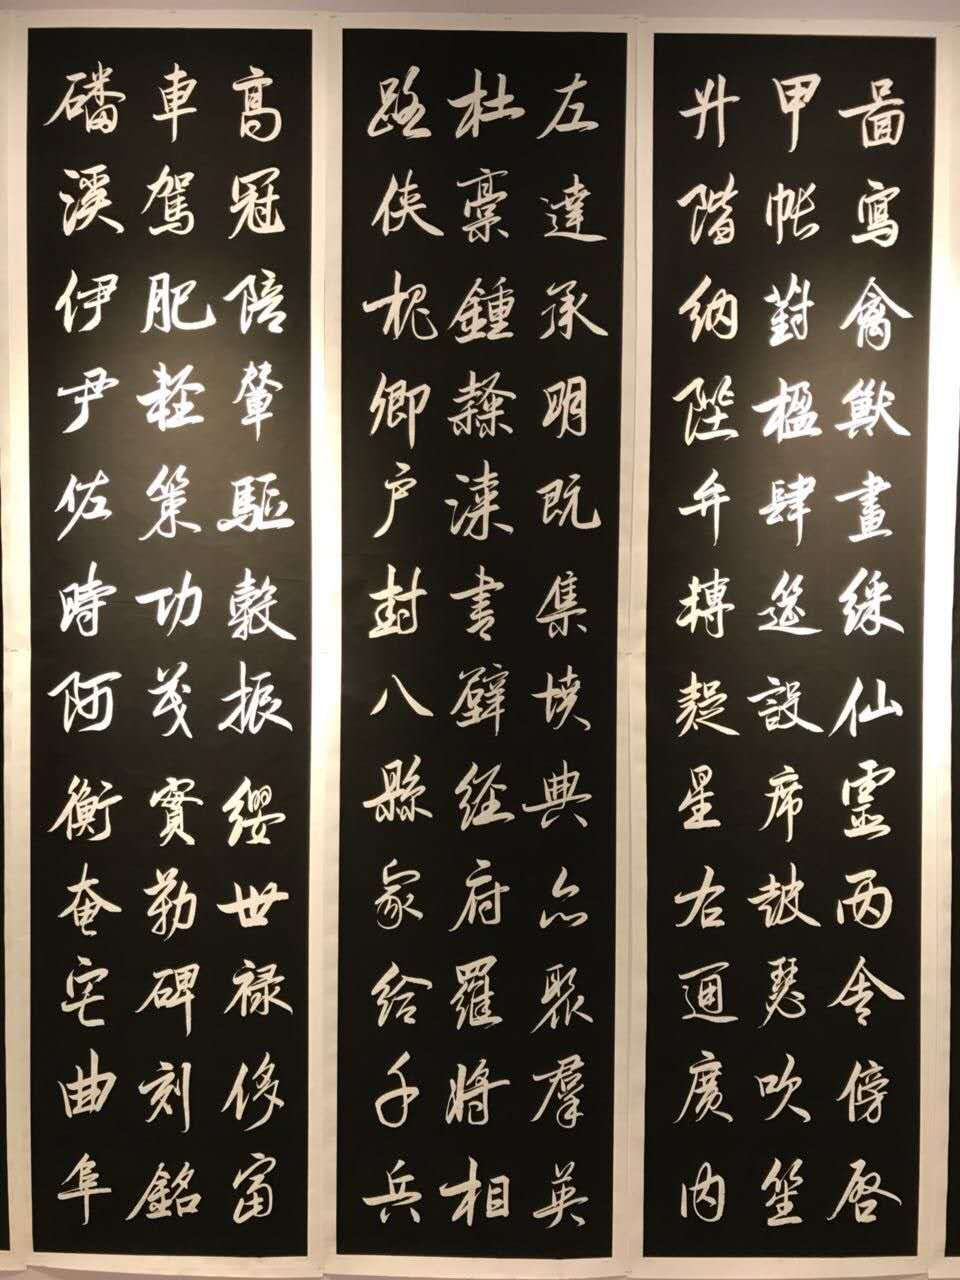 啚寫禽獸畫綵仙靈丙舍傍啓
甲帳對楹肆筵設席鼓瑟吹笙
升階納陛弁轉疑星右通廣内
左達承明既集墳典亦聚羣英
杜稾鍾隸漆書壁經府羅將相
路俠槐卿戶封八縣家給千兵
高冠陪輦驅轂振纓世祿侈富
車駕肥輕策功茂實勒碑刻銘
磻溪伊尹佐時阿衡奄宅曲阜